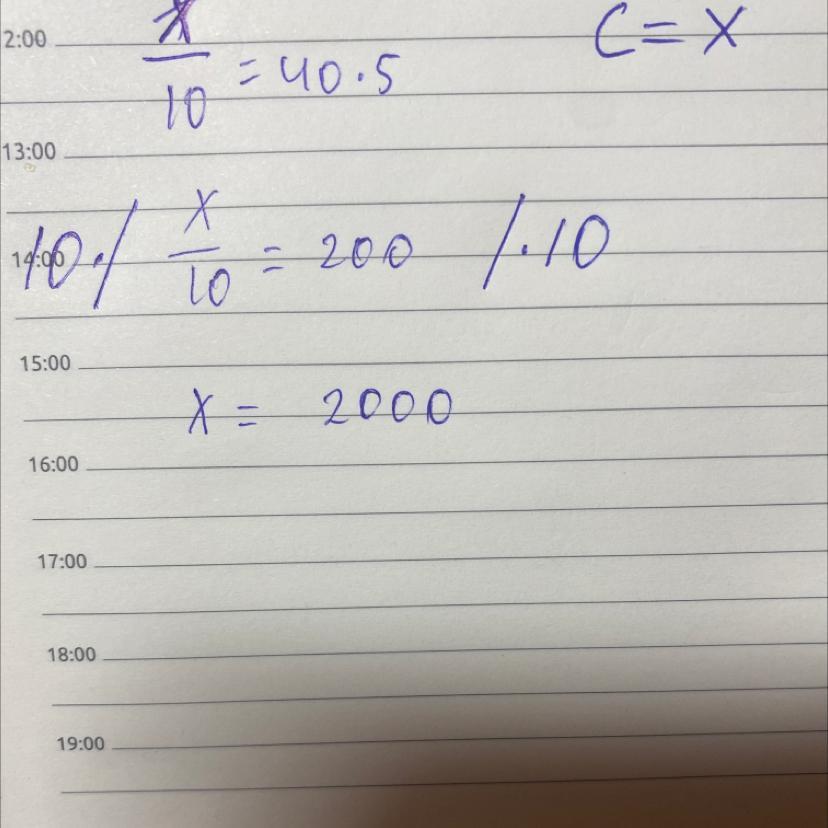 2:00
x/10 = 40·5
C = X
13:00
14:00
10·/ x/10 = 200 /·10
15:00
x = 2000
16:00
17:00
18:00
19:00